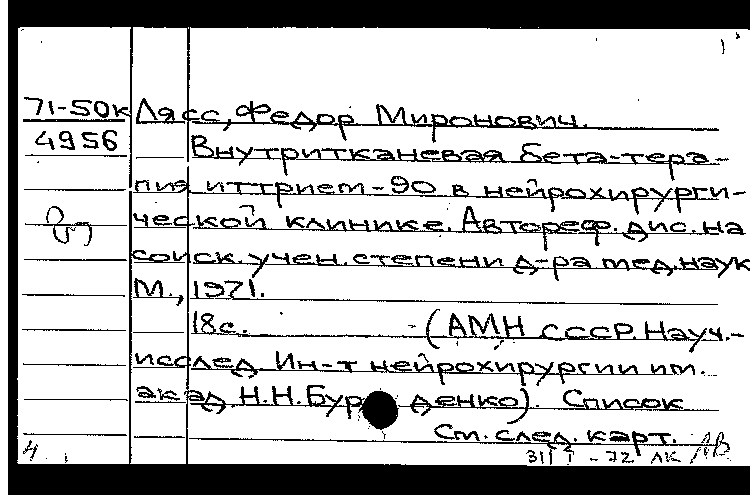 71-50к Лясс, Федор Миронович.
4956 Внутритканевая бета-тера-
пия иттрием-90 в нейрохирурги-
ческой клинике. Автореф. дис. на
соиск. учен. степени д-ра мед. наук
М., 1971.
18с. (АМН СССР. Науч.-
исслед. Ин-т нейрохирургии им.
акад. Н.Н. Бурденко). Список
См. след. карт.
4 31 I - 72 ЛК